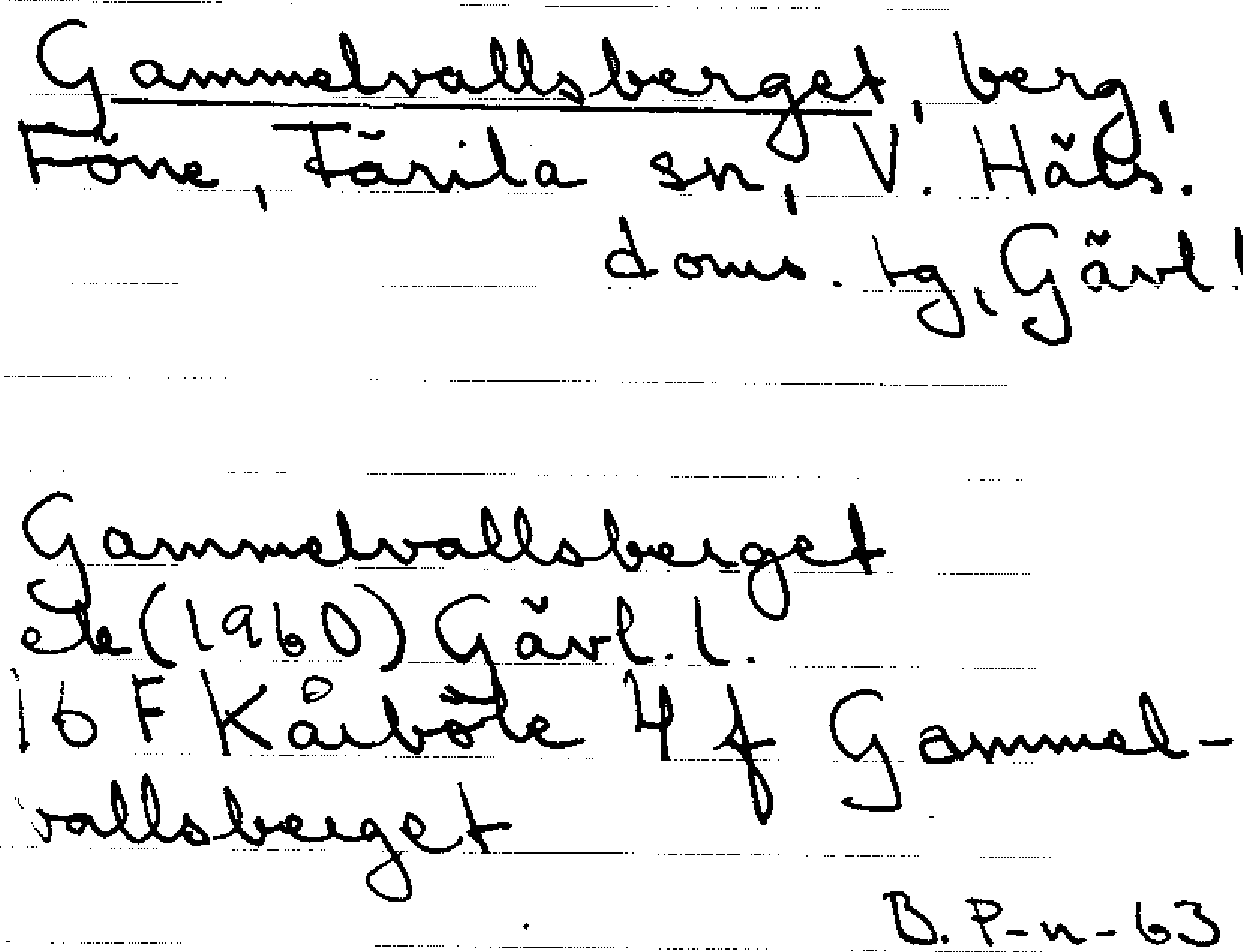 Gammelvallsberget, berg,
Föne, Färila sn, V. Häls.
doms. tg, Gävl.
Gammelvallsberget
ek (1960) Gävl. l.
16 F Kårböle 4 f Gammel-
vallsberget
B. P-n-63